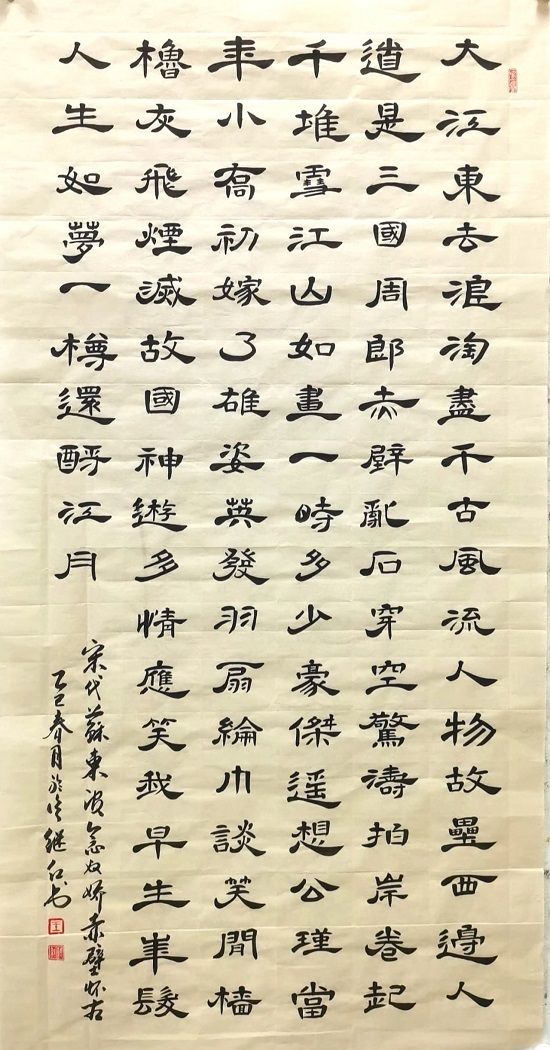 大江東去浪淘盡千古風流人物故壘西邊人
道是三國周郎赤壁亂石穿空驚濤拍岸卷起
千堆雪江山如畫一時多少豪傑遥想公瑾當
年小喬初嫁了雄姿英發羽扇綸巾談笑間檣
櫓灰飛煙滅故國神遊多情應笑我早生華髮
人生如夢一樽還酹江月
宋代蘇東坡念奴嬌赤壁怀古
乙巳春月於继红书